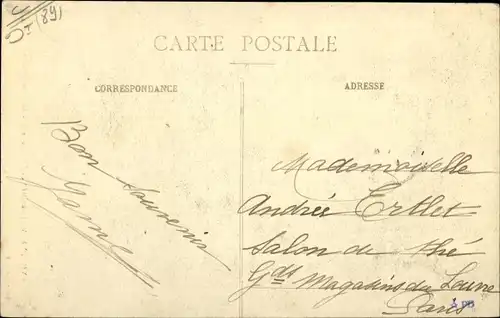 (89)
CARTE POSTALE
CORRESPONDANCE
ADRESSE
Bon souvenir
Mademoiselle
Andrée Ertlet
Salon de thé
Gds Magasins du Louvre
Paris